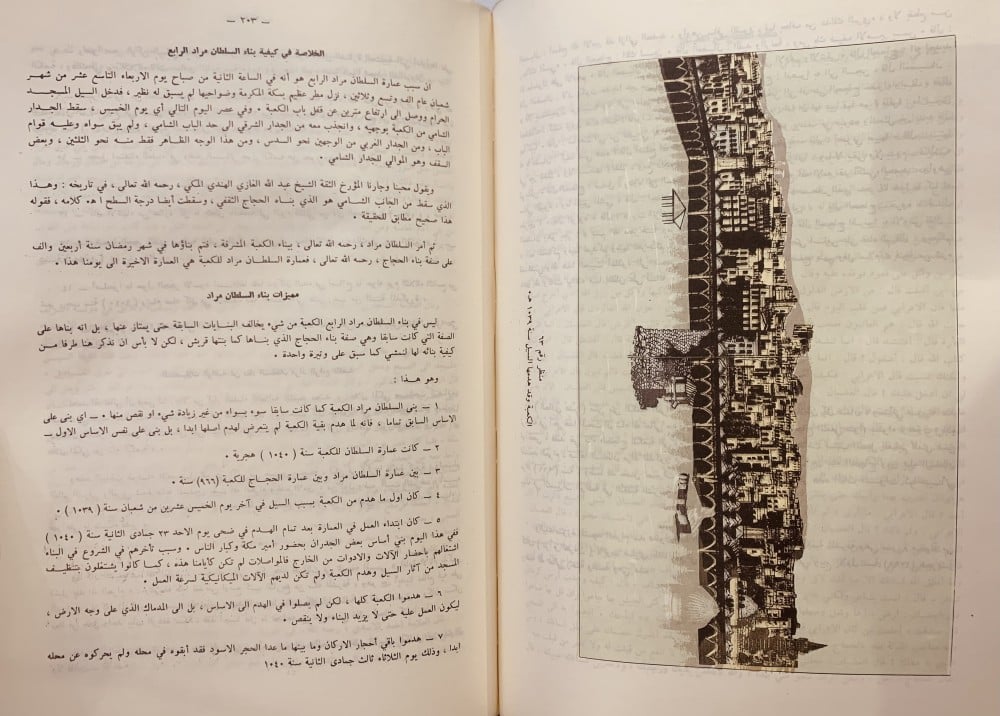 — ٢٠٣ —
الخلاصة في كيفية بناء السلطان مراد الرابع
ان سبب عمارة السلطان مراد الرابع هو أنه في الساعة الثانية من صباح يوم الاربعاء التاسع عشر من شهر
شعبان عام الف وتسع وثلاثين ، نزل مطر عظيم بمكة المكرمة وضواحيها لم يسبق له نظير ، فدخل السيل المسجد
الحرام ووصل الى ارتفاع مترين عن قفل باب الكعبة ٠ وفي عصر اليوم التالي أي يوم الخميس ، سقط الجدار
الشامي من الكعبة بوجهيه ، وانجذب معه من الجدار الشرقي الى حد الباب الشامي ، ولم يبق سواه وعليه قوام
الباب ، ومن الجدار الغربي من الوجهين نحو السدس ، ومن هذا الوجه الظاهر فقط منه نحو الثلثين ، وبعض
السقف وهو الموالي للجدار الشامي ٠
ويقول محبنا وجارنا المؤرخ الثقة الشيخ عبد الله الغازي الهندي المكي ، رحمه الله تعالى ، في تاريخه : وهذا
الذي سقط من الجانب الشامي هو الذي بناه الحجاج الثقفي ، وسقطت أيضا درجة السطح ا هـ ٠ كلامه ، فقوله
هذا صحيح مطابق للحقيقة ٠
ثم أمر السلطان مراد ، رحمه الله تعالى ، ببناء الكعبة المشرفة ، فتم بناؤها في شهر رمضان سنة أربعين والف
على صفة بناء الحجاج ، رحمه الله تعالى ، فعمارة السلطان مراد للكعبة هي العمارة الاخيرة الى يومنا هذا ٠
مميزات بناء السلطان مراد
ليس في بناء السلطان مراد الرابع الكعبة من شيء يخالف البنايات السابقة حتى يمتاز عنها ، بل انه بناها على
الصفة التي كانت سابقا وهي صفة بناء الحجاج الذي بناها كما بنتها قريش ، لكن لا بأس ان نذكر هنا طرفا من
كيفية بنائه لها لنمشي كما سبق على وتيرة واحدة ٠
وهو هذا :
١ — بنى السلطان مراد الكعبة كما كانت سابقا سوء بسواء من غير زيادة شيء او نقص منها ٠ — اي بنى على
الاساس السابق تماما ، فانه لما هدم بقية الكعبة لم يتعرض لهدم اصلها ابدا ، بل بنى على نفس الاساس الاول —
٢ — كانت عمارة السلطان للكعبة سنة ( ١٠٤٠ ) هجرية ٠
٣ — بين عمارة السلطان مراد وبين عمارة الحجاج للكعبة (٩٦٦) سنة ٠
٤ — كان اول ما هدم من الكعبة بسبب السيل في آخر يوم الخميس عشرين من شعبان سنة ( ١٠٣٩ ) ٠
٥ — كان ابتداء العمل في العمارة بعد تمام الهدم في ضحى يوم الاحد ٢٣ جمادى الثانية سنة ( ١٠٤٠ )
ففي هذا اليوم بني أساس بعض الجدران بحضور أمير مكة وكبار الناس ٠ وسبب تأخرهم في الشروع في البناء
اشتغالهم باحضار الآلات والادوات من الخارج فالمواصلات لم تكن كأيامنا هذه ، كما كانوا يشتغلون بتنظيف
المسجد من آثار السيل وهدم الكعبة ولم تكن لديهم الآلات الميكانيكية لسرعة العمل ٠
٦ — هدموا الكعبة كلها ، لكن لم يصلوا في الهدم الى الاساس ، بل الى المدماك الذي على وجه الارض ،
ليكون العمل عليه حتى لا يزيد البناء ولا ينقص ٠
٧ — هدموا باقي أحجار الاركان وما بينها ما عدا الحجر الاسود فقد أبقوه في محله ولم يحركوه عن محله
ابدا ، وذلك يوم الثلاثاء ثالث جمادى الثانية سنة ١٠٤٠
منظر رقم ٦٣
الكعبة وقد هدمها السيل سنة ١٠٣٩ هـ